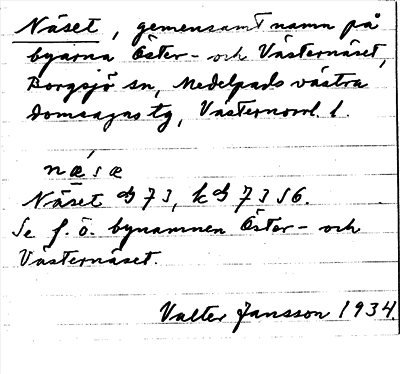 Näset, gemensamt namn på
byarna Öster- och Västernäset,
Borgsjö sn, Medelpads västra
domsagas tg, Västernorrl. l.
nǽ̲sæ
Näset 73, k 73 S6.
Se f. ö. bynamnen Öster- och
Västernäset.
Valter Jansson 1934.